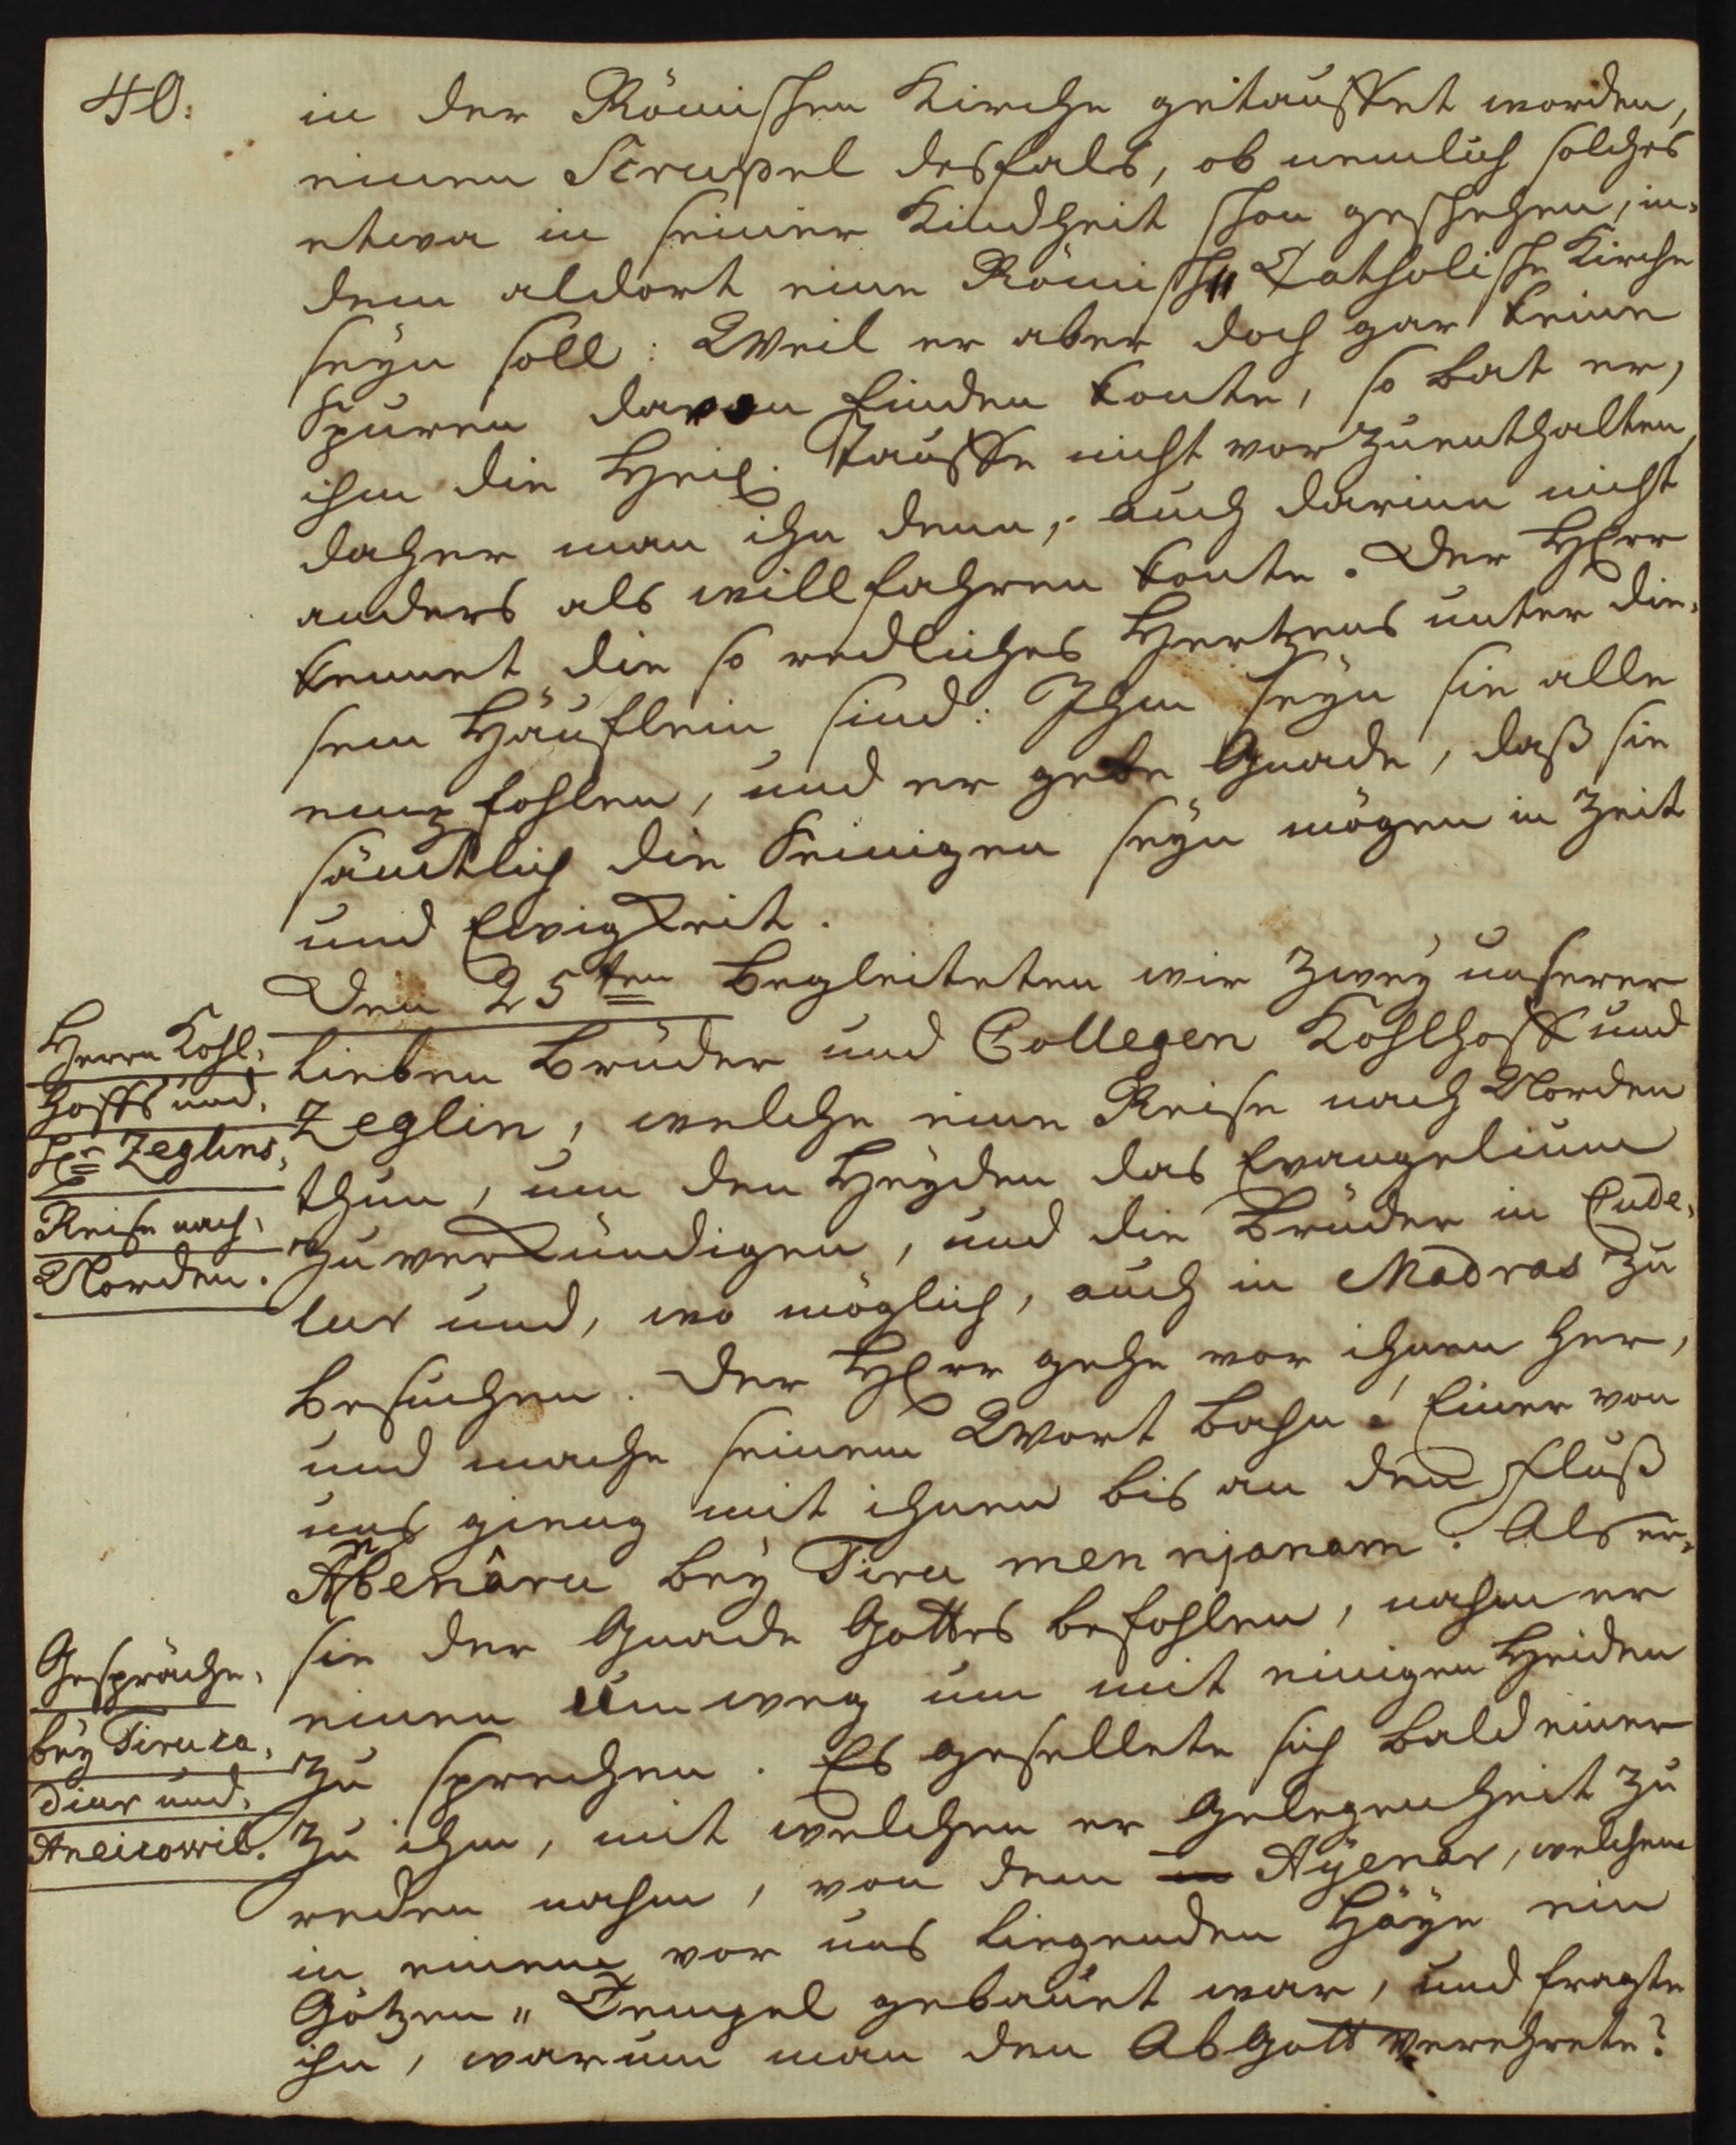 40.
in der Römischen Kirche getauffet worden,
einen Scrupel desfals, ob nemlich solches
etwa in seiner Kindheit schon geschehen, in-
dem aldort eine Römisch„ Catholische Kirche
seyn soll: Weil er aber doch gar keine
Spuren davon finden konte, so bat er,
ihm die Heil. Tauffe nicht vorzuenthalten,
daher man ihn denn, auch darinn nicht
anders als willfahren konte. Der HErr
kennet die so redliches Hertzens unter die-
sem Häuflein sind: Ihm seyn sie alle
empfohlen, und er gebe Gnade, daß sie
sämtlich die Seinigen seyn mögen in Zeit
und Ewigkeit.
Den 25ten begleiteten wir zwey unserer
lieben Brüder und Collegen Kohlhoff und
Zeglin, welche eine Reise nach Norden
thun, um den Heyden das Evangelium
zu verkündigen, und die Brüder in Cude-
lur und, wo möglich, auch in Madras zu
besuchen. Der HErr gehe vor ihnen her,
und mache seinem Wort bahn! Einer von
uns gieng mit ihnen bis an den Fluß
bey Tiru men njanam. Als er
sie der Gnade Gottes befohlen, nahm er
einen Umweg um mit einigen Heiden
zu sprechen. Es gesellete sich bald einer
zu ihm, mit welchen er Gelegenheit zu
reden nahm, von dem Ayenar, welchem
in einem vor uns liegenden Häyn ein
Götzen„ Tempel gebauet war, und fragte
ihn, warum man den Abgott verehrete?
Herrn Kohl-
hoffs und
Hrn Zeglins
Reise nach
Norden.
Gespräche
bey Tiruca-
diur und
Aneicowil.